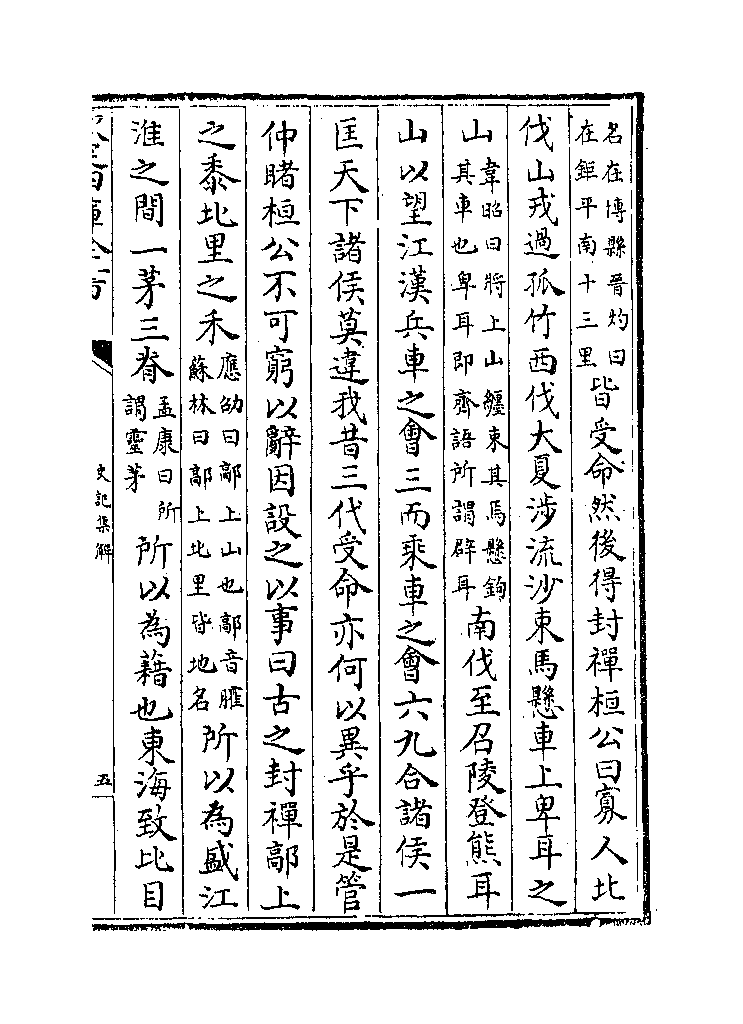 名在博縣晉灼曰在鉅平南十三里皆受命然後得封禪桓公曰寡人北
伐山戎過孤竹西伐大夏涉流沙束馬懸車上卑耳之
山韋昭曰將上山纒束其馬懸鉤其車也卑耳即齊語所謂辟耳南伐至召陵登熊耳
山以望江漢兵車之會三而乘車之會六九合諸侯一
匡天下諸侯莫違我昔三代受命亦何以異乎於是管
仲睹桓公不可窮以辭因設之以事曰古之封禪鄗上
之黍北里之禾應劭曰鄗上山也鄗音臛蘇林曰鄗上北里皆地名所以為盛江
淮之間一茅三脊孟康曰所謂靈茅所以為藉也東海致比目
史記集解
五